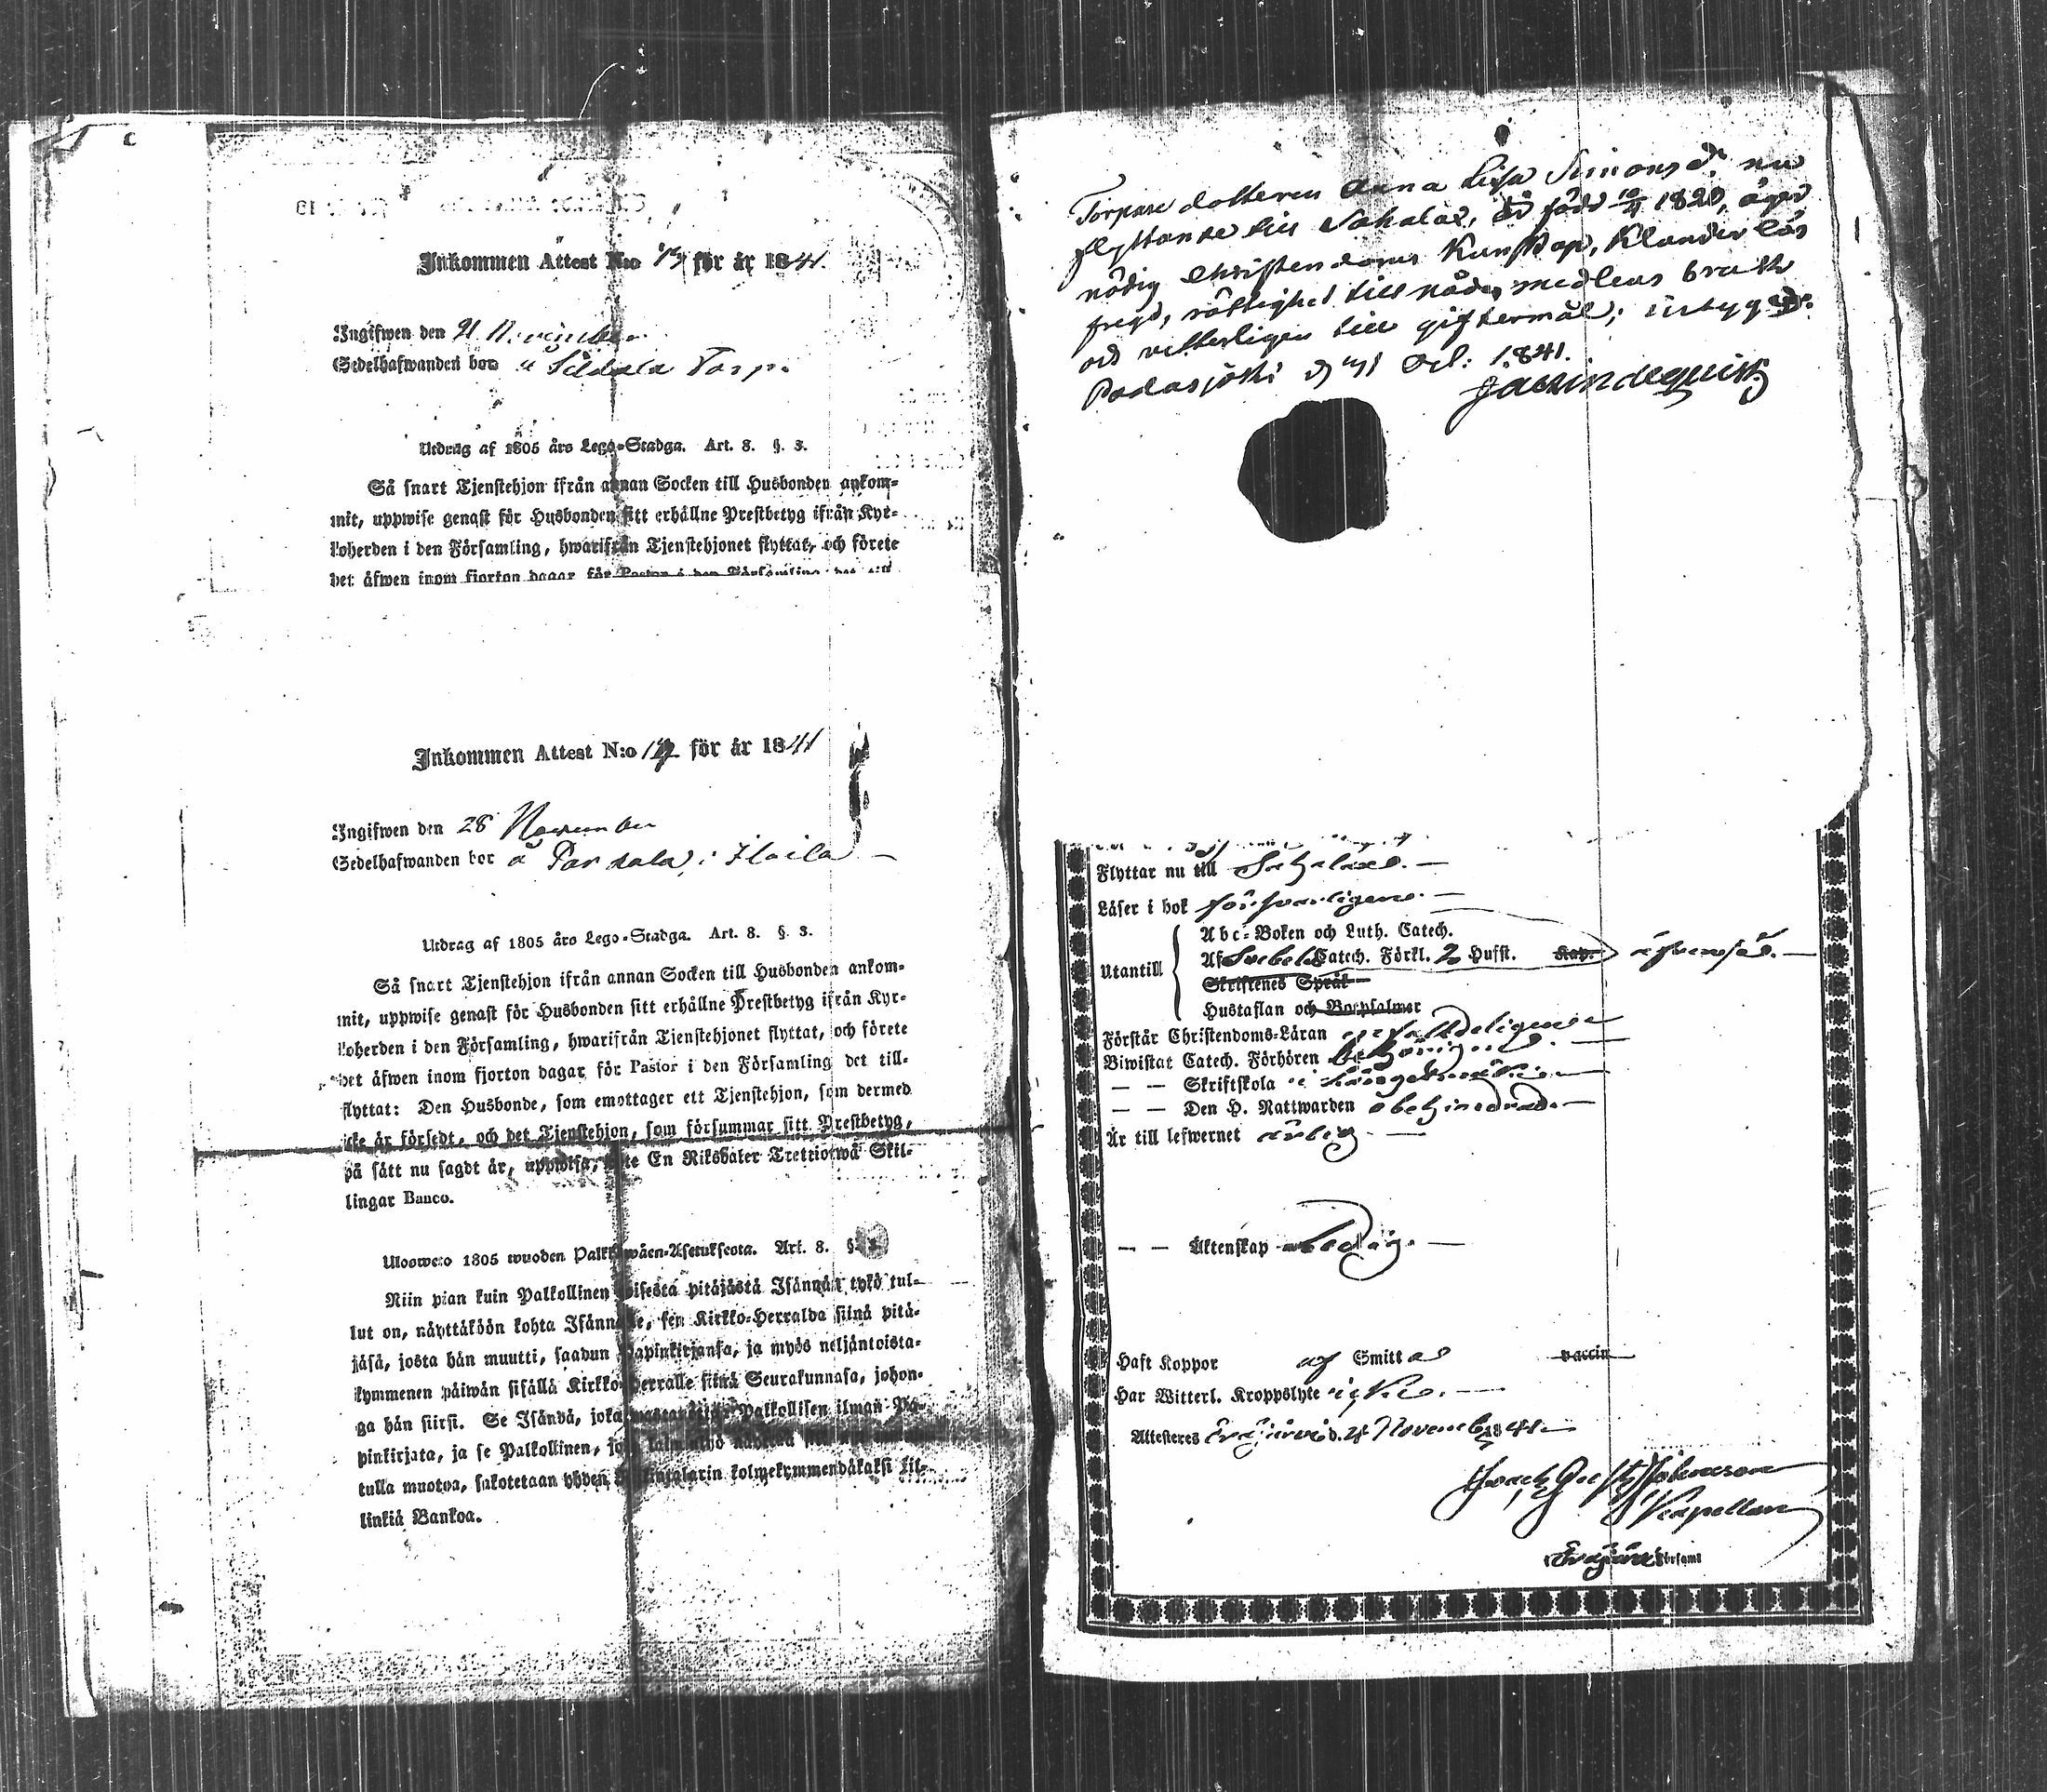 Inkommen Attest N:o 13 för år 1841.
Ingifwen den 21 November
Sedelhafwanden bor å Sildala Torp.
Utdrag af 1805 års Lego-Stadga. Art. 8. §. 3.
Så snart Tjenstehjon ifrån annan Socken till Husbonden ankom-
mit, uppwise genast för Husbonden sitt erhållne Prestbetyg ifrån Kyr-
koherden i den Församling, hwarifrån Tjenstehjonet flyttat, och förete
det äfwen inom fjorton dagar för Pastor i den Församling det till-
Inkommen Attest N:o 12 för år 1841
Ingifwen den 28 November
Sedelhafwanden bor å Pardala i Haila
Utdrag af 1805 års Lego-Stadga. Art. 8. §. 3.
Så snart Tjenstehjon ifrån annan Socken till Husbonden ankom-
mit, uppwise genast för Husbonden sitt erhållne Prestbetyg ifrån Kyr-
koherden i den Församling, hwarifrån Tjenstehjonet flyttat, och förete
det äfwen inom fjorton dagar för Pastor i den Församling det till-
flyttat: Den Husbonde, som emottager ett Tjenstehjon, som dermed
icke är försedt, och det Tjenstehjon, som försummar sitt Prestbetyg,
på sätt nu sagdt är, uppwisa, böte En Riksdaler Trettiotwå Skil-
lingar Banco.
Ulosweto 1805 wuoden Palkkawäen-Asetuksesta. Art. 8. §. 3.
Niin pian kuin Palkollinen toisesta pitäjästä Isännän tykö tul-
lut on, näyttäköön kohta Isännälle, sen Kirkko-Herralda siinä pitä-
jäsä, josta hän muutti, saadun Papinkirjansa, ja myös neljäntoista-
kymmenen päiwän sisällä Kirkko-Herralle siinä Seurakunnasa, johon-
ga hän siirsi. Se Isändä, joka wastaanottaa Palkollisen ilman Pa-
pinkirjata, ja se Palkollinen, joka
tulla muotoa, sakotetaan yhden Riikintalarin kolmekymmendäkaksi kil-
linkiä Bankoa.
Torpare dotteren Anna Lisa Simonsd:r nu
flyttande till Sahalax, är född 10/4 1820, äger
nödig Christendoms Kunskap, Klanderlös
frejd, rättighet till nådemedlens bruk
och vetterligen till giftermål; intygas.
Padasjoki d 31 Oct: 1841.
Flyttar nu till Sahalax.
Läser i bok försvarligen.
Abc-Boken och Luth. Catech.
Utantill Af Svebelii Catech. Förkl. 2 Hufst. Kap. äfvenså.
Skriftenes Språk
Hustaflan och Botpsalmer
Förstår Christendoms-Läran enfalldeligen
Biwistat Catech. Förhören behörigen.
— — Skriftskola i Längelmäki.
— — Den H. Nattwarden obehindrad.
Är till lefwernet ärlig.
— — Äktenskap ledig.
Haft Koppor af Smittad vaccin
Har Witterl. Kroppslyte icke.
Attesteres Eräjärvi d. 21 November 1841
Johnsson
Capellan
Eräjärvi